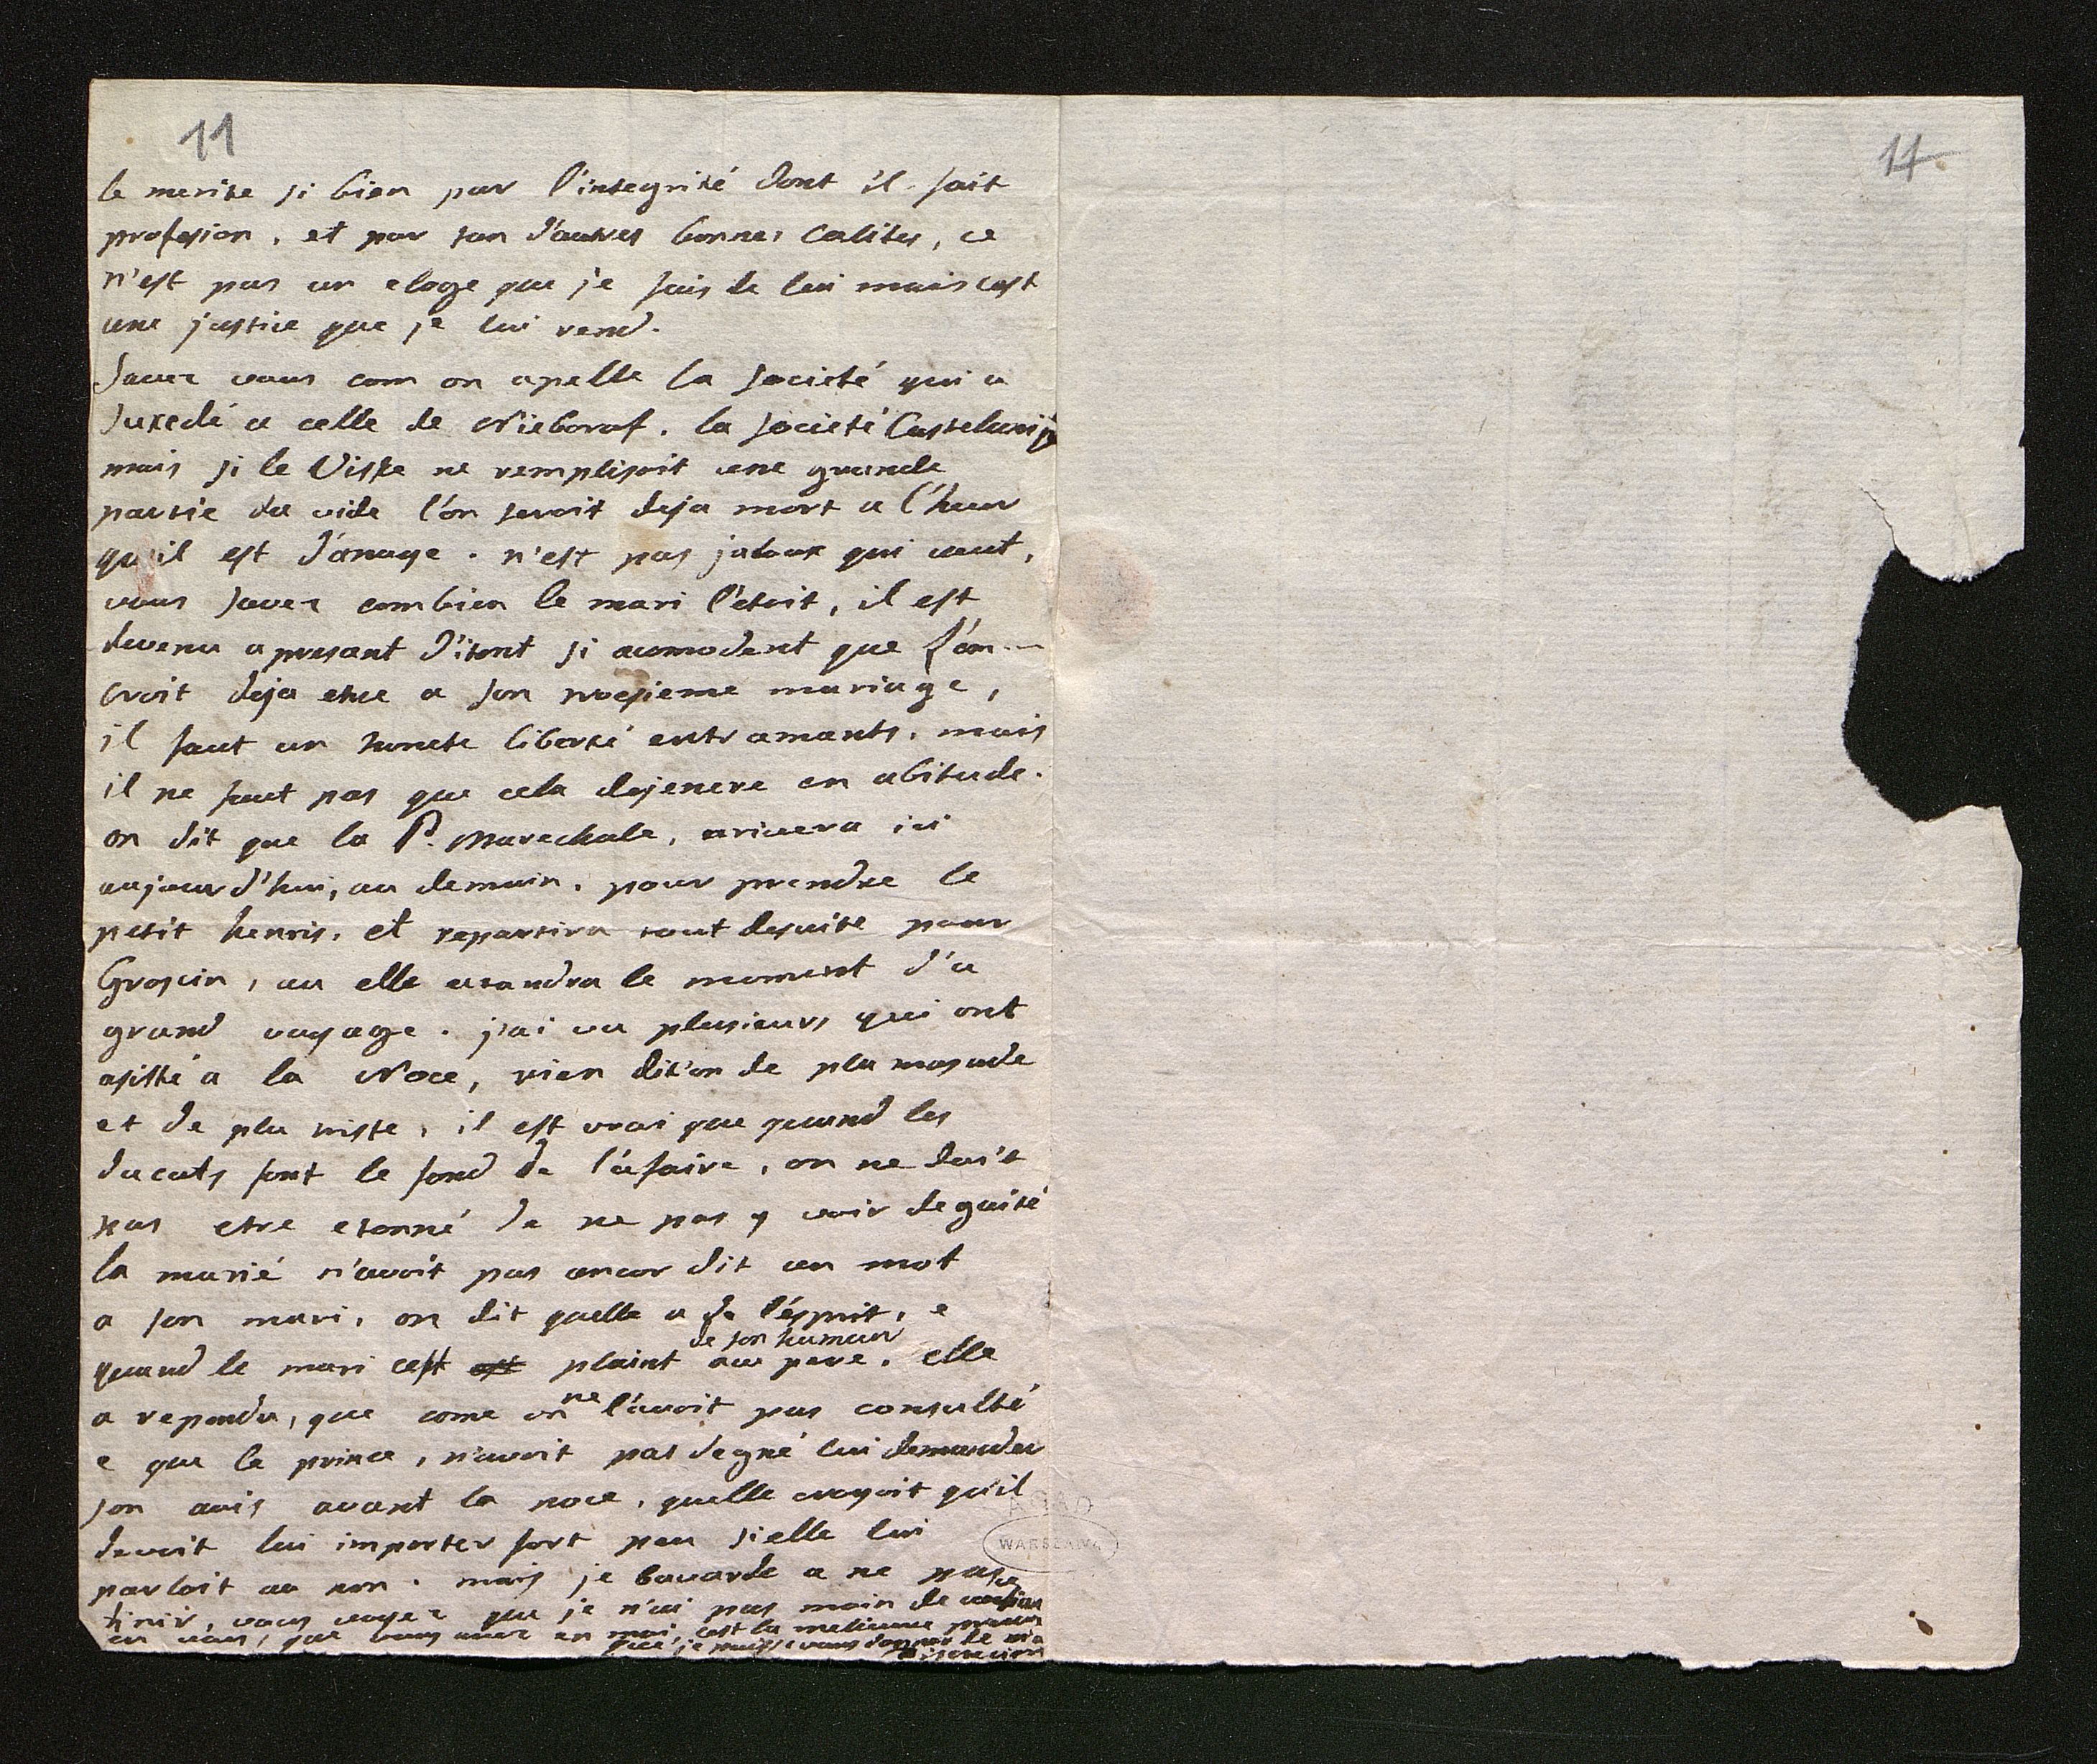 11
14
le merite si bien par l'integrité dont il fait
profesion, et par tan d'autres bonnes calites, ce
n'est pas un eloge que je fais de lui mais cest
une justice que je lui rend.
Savez vous com on apelle la societé qui a
suxedé a celle de Nieboraf. la societé
mais si le Viske ne remplisoit une grande
partie du vide l'on seroit deja mort a l'heur
qu'il est d'anuye. n'est pas jaloux qui veut,
vous savez combien le mari l'etoit, il est
devenu apresant d'itont si acomodent que l'on
croit deja etre a son troisieme mariage,
il faut un honete liberté entr amants, mais
il ne faut pas que cela dejenere en abitude.
on dit que la P. Marechale, arivera ici
aujourd'hui, ou demain, pour prendre le
petit henris, et repartira tout desuite pour
ou elle atandra le moment d'u
grand voyage. j'ai vu plusieurs qui ont
asisté a la Noce, rien dit'on de plu mosade
et de plu triste, il est vrai que quand les
ducats font le fond de l'afaire, on ne doit
pas etre etonné de ne pas y voir de gaité
la marié n'avoit pas ancor dit un mot
a son mari, on dit quelle a de l'esprit, e
de son humeur
quand le mari cest plaint au pere, elle
a repondu, que come on ne l'avoit pas consulté
e que le prince, n'avoit pas degné lui demander
son avis avant la noce, quelle croyoit qu'il
devoit lui importer fort peu si elle lui
parloit ou non. mais je bavarde a ne pas
finir, vous voyez que je n'ai pas moin de
en vous, que vous avez en moi, cest la melieure preuve
que je puisse vous donner de ma
discretion
AGAD
WARSZAWA